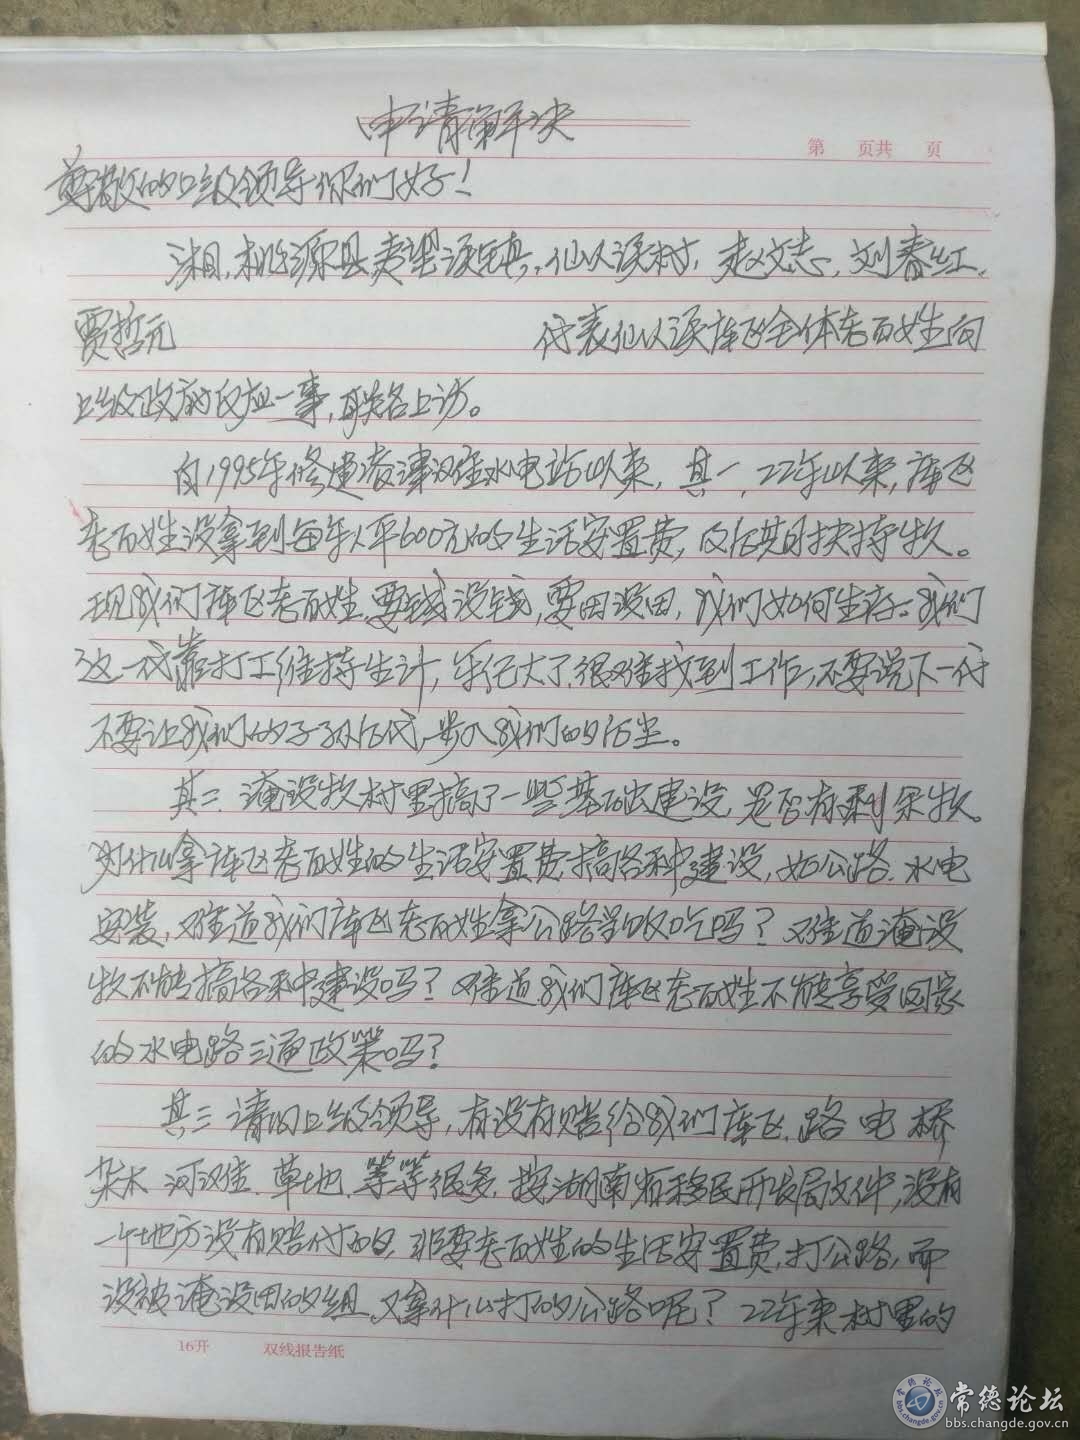 申请解决
第 页共 页
尊敬的上级领导你们好！
湘，桃源县夷望溪镇，仙人溪村，赵文志，刘春红，
贾哲元 代表仙人溪库区全体老百姓向
上级政府反应一事，联名上访。
自1995年修建凌津滩水电站以来，其一，22年以来，库区
老百姓没拿到每年人平600元的生活安置费，及后期扶持款。
现我们库区老百姓，要钱没钱，要田没田，我们如何生存。我们
这一代靠打工维持生计，年纪大了，很难找到工作，不要说下一代
不要让我们的子孙后代，步入我们的后尘。
其二，淹没款村里搞了一些基础建设，是否有剩余款。
为什么拿库区老百姓的生活安置费搞各种建设，如公路，水电
安装，难道我们库区老百姓拿公路当饭吃吗？难道淹没
款不能搞各种建设吗？难道我们库区老百姓不能享受国家
的水电路三通政策吗？
其三，请问上级领导，有没有赔给我们库区，路 电 桥
杂木 河 草地，等等很多，按湖南省移民开发局文件，没有
一个地方没有赔付的，非要老百姓的生活安置费，打公路，而
没被淹没田的组，又拿什么打的公路呢？22年来村里的
16开 双线报告纸
常德论坛
bbs.changde.gov.cn